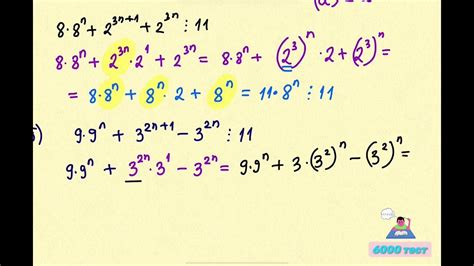 8·8ⁿ + 2³ⁿ⁺¹ + 2³ⁿ ⋮ 11
8·8ⁿ + 2³ⁿ·2¹ + 2³ⁿ = 8·8ⁿ + (2³)ⁿ·2 + (2³)ⁿ
= 8·8ⁿ + 8ⁿ·2 + 8ⁿ = 11·8ⁿ ⋮ 11
9·9ⁿ + 3²ⁿ⁺¹ − 3²ⁿ ⋮ 11
9·9ⁿ + 3²ⁿ·3¹ − 3²ⁿ = 9·9ⁿ + 3·(3²)ⁿ − (3²)ⁿ =
6000 ТЕСТ